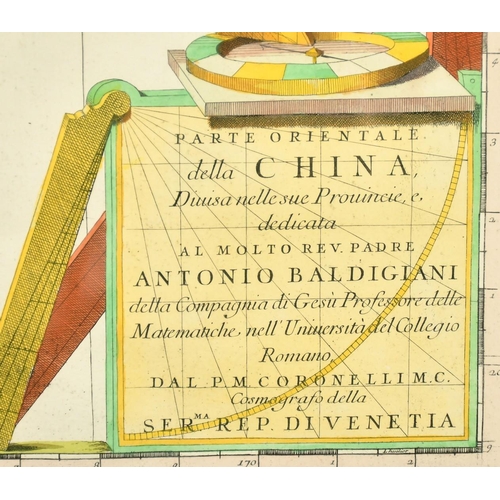 PARTE ORIENTALE
della CHINA,
Diuisa nelle sue Prouincie, e,
dedicata
AL MOLTO REV. PADRE
ANTONIO BALDIGIANI
della Compagnia di Gesù Professore delle
Matematiche, nell'Uniuersità del Collegio
Romano
DAL P. M. CORONELLI M.C.
Cosmografo della
SER.MA REP. DI VENETIA
4
3
2
1
20
9
9
170
1
2